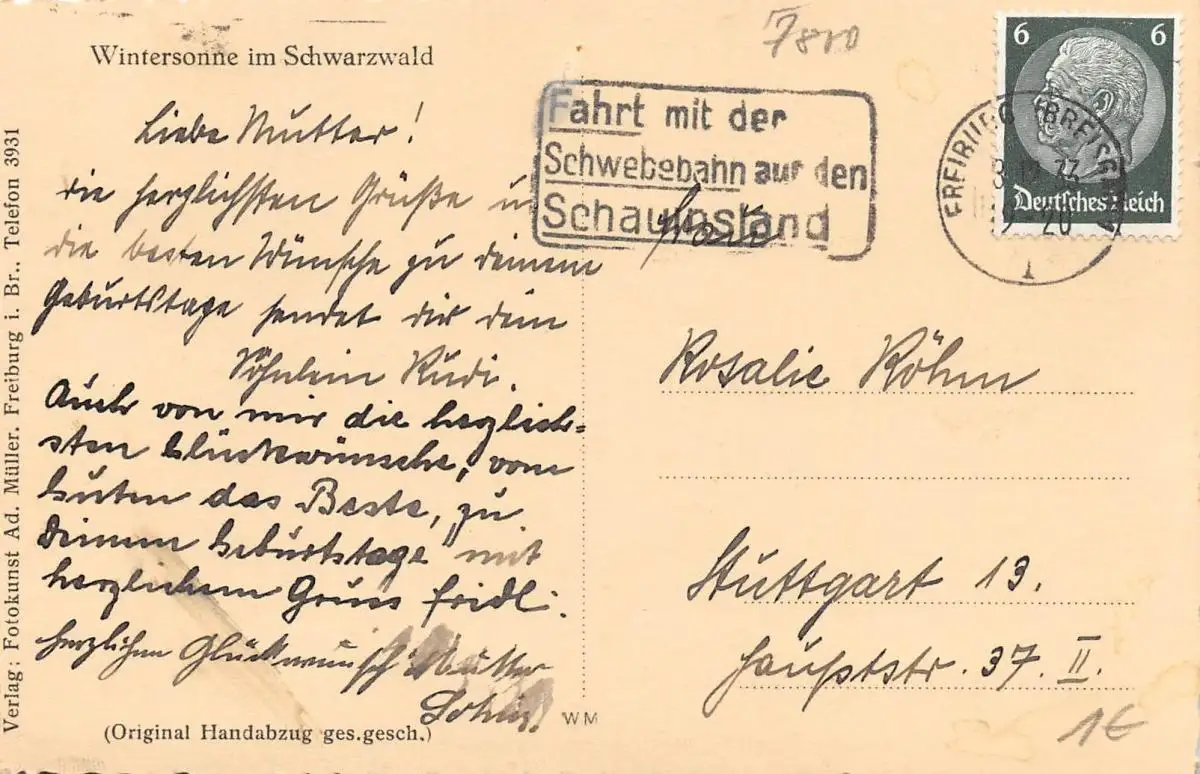 Wintersonne im Schwarzwald
Liebe Mutter!
die herzlichsten Grüße u.
die besten Wünsche zu deinem
Geburtstage sendet dir dein
Söhnlein Rudi.
Auch von mir die herzlich-
sten Glückwünsche, vom
Guten das Beste, zu
Deinem Geburtstage mit
herzlichem Gruss Friedl.
herzlichen Glückwunsch Mutter
(Original Handabzug ges.gesch.)
Verlag: Fotokunst Ad. Müller. Freiburg i. Br., Telefon 3931
WM
7800
Fahrt mit der
Schwebebahn auf den
Schauinsland
6 6
Deutsches Reich
FREIBURG (BREISGAU)
1
Frau
Rosalie Röhm
Stuttgart 13.
Hauptstr. 37. II.
1€